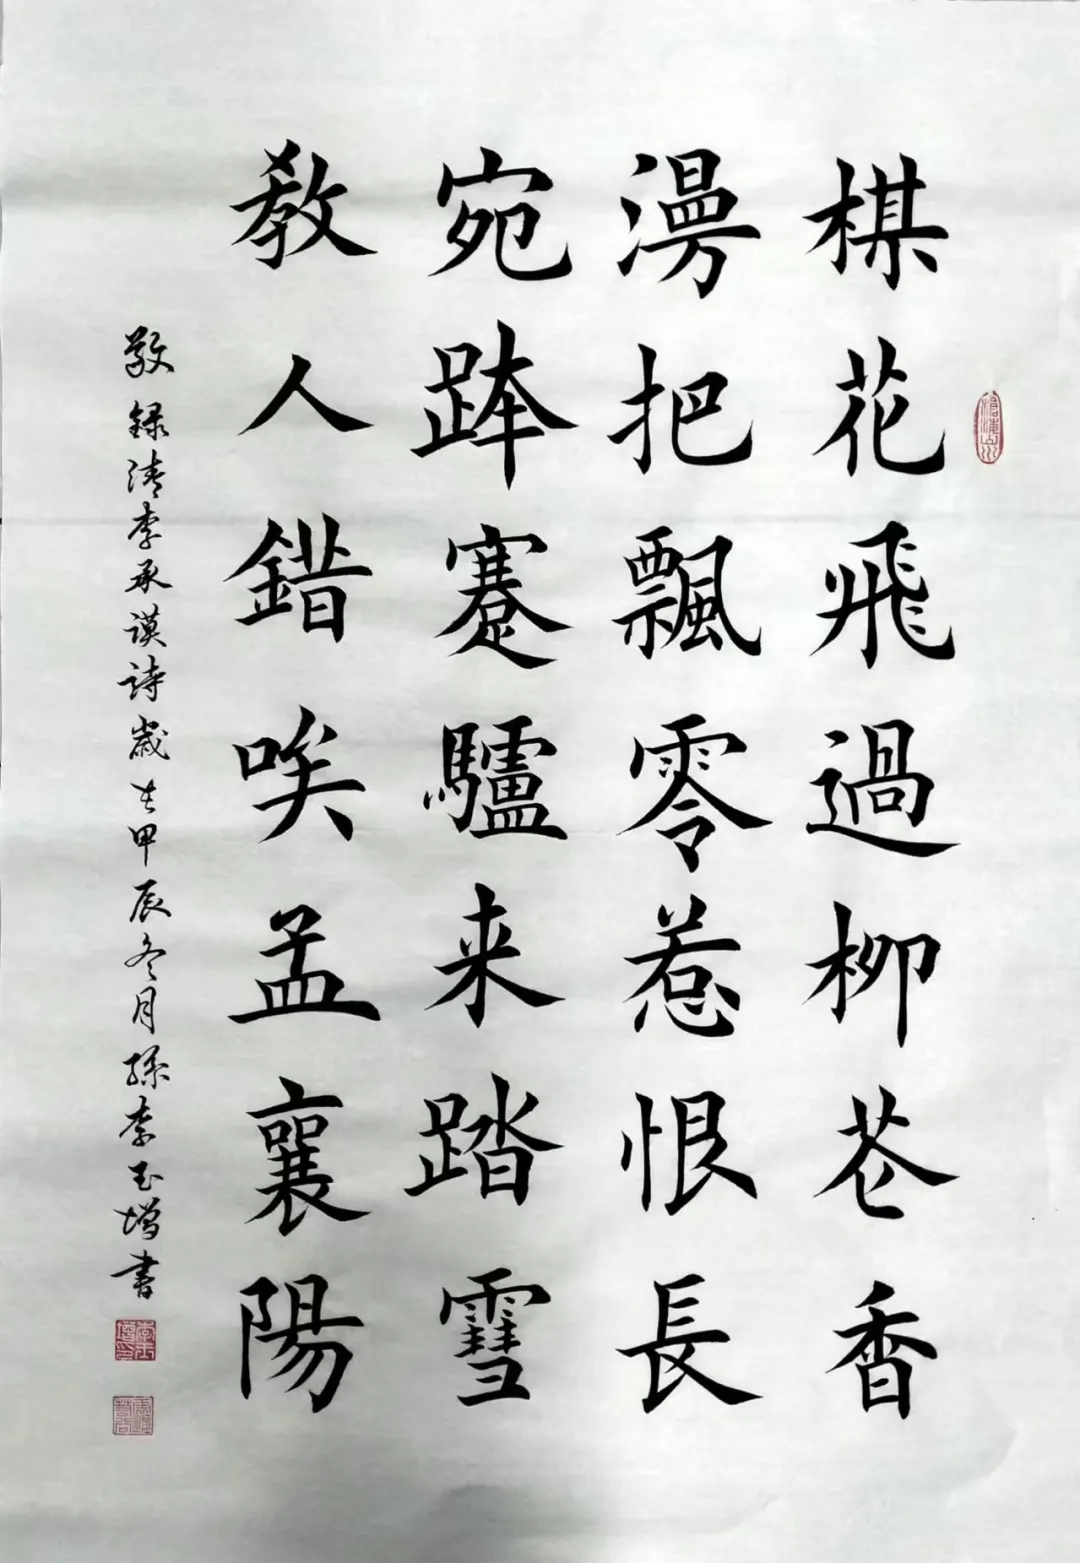 楳花飛過柳苍香
漫把飄零惹恨長
宛蹇驢来踏雪
教人錯唉孟襄陽
敬録清李承謨詩歲在甲辰冬月孫李玉增書
李玉增印